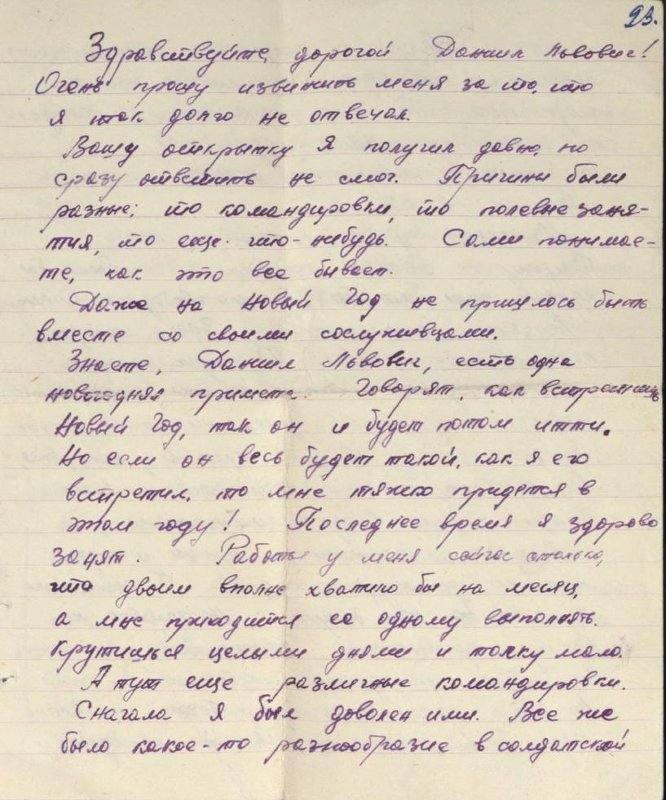 23.
Здравствуйте, дорогой Даниил Львович!
Очень прошу извинить меня за то, что
я так долго не отвечал.
Вашу открытку я получил давно, но
сразу ответить не смог. Причины были
разные; то командировки, то полевые заня-
тия, то еще что-нибудь. Сами понимае-
те, как это все бывает.
Даже на Новый Год не пришлось быть
вместе со своими сослуживцами.
Знаете, Даниил Львович, есть одна
новогодняя примета. Говорят, как встретишь
Новый Год, так он и будет потом итти.
Но если он весь будет такой, как я его
встретил, то мне тяжко придется в
этом году! Последнее время я здорово
занят. Работы у меня сейчас столько,
что двоим вполне хватило бы на месяц,
а мне приходится ее одному выполнять.
Крутишься целыми днями и толку мало.
А тут еще различные командировки.
Сначала я был доволен ими. Все же
было какое-то разнообразие в солдатской